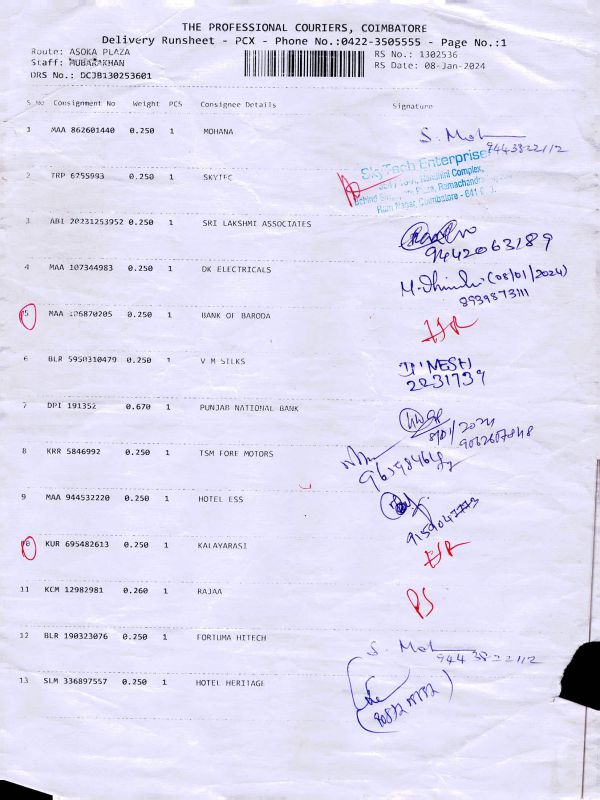 THE PROFESSIONAL COURIERS, COIMBATORE
Delivery Runsheet - PCX - Phone No.:0422-3505555 - Page No.:1
Route: ASOKA PLAZA
RS No.: 1302536
Staff: MUBARAKHAN
RS Date: 08-Jan-2024
DRS No.: DCJB130253601
S No Consignment No Weight PCS Consignee Details Signature
1 MAA 862601440 0.250 1 MOHANA
9443822112
2 TRP 6755993 0.250 1 SKYTEC
Sky Tech Enterprise
Complex,
Plaza, Ramachandra
Ram Nagar, Coimbatore - 641
3 ABI 20231253952 0.250 1 SRI LAKSHMI ASSOCIATES
9442063189
4 MAA 107344983 0.250 1 DK ELECTRICALS
(08/01/2024)
8939873111
5 MAA 106870205 0.250 1 BANK OF BARODA
6 BLR 5950310479 0.250 1 V M SILKS
DINESH
2231739
7 DPI 191352 0.670 1 PUNJAB NATIONAL BANK
8/01/2024
8 KRR 5846992 0.250 1 TSM FORE MOTORS
9 MAA 944532220 0.250 1 HOTEL ESS
10 KUR 695482613 0.250 1 KALAYARASI
11 KCM 12982981 0.260 1 RAJAA
12 BLR 190323076 0.250 1 FORTUMA HITECH
9443822112
13 SLM 336897557 0.250 1 HOTEL HERITAGE